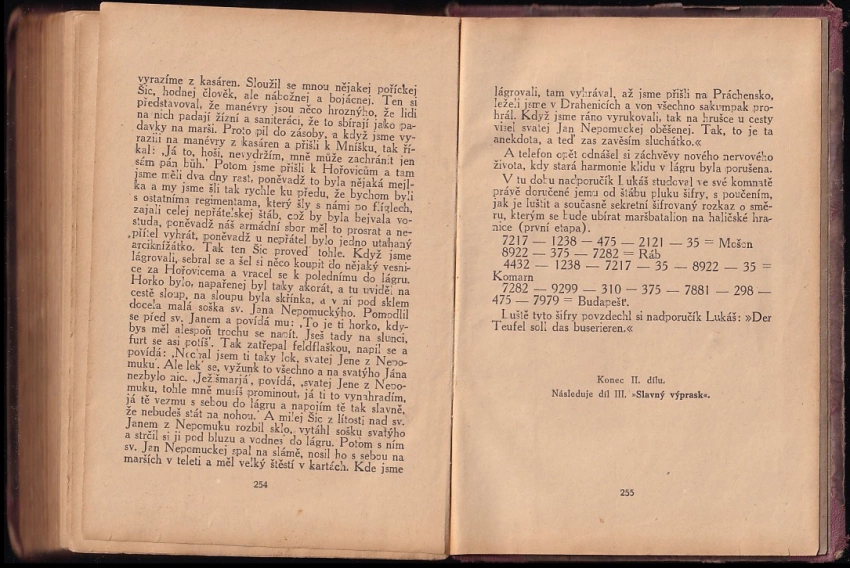 vyrazíme z kasáren. Sloužil se mnou nějakej poříckej
Šic, hodnej člověk, ale nábožnej a bojácnej. Ten si
představoval, že manévry jsou něco hroznýho, že lidi
na nich padají žízní a saniteráci, že to sbírají jako pa-
davky na marši. Proto pil do zásoby, a když jsme vy-
razili na manévry z kasáren a přišli k Mníšku, tak ří-
kal: ‚Já to, hoši, nevydržím, mně může zachránit jen
sám pán bůh.' Potom jsme přišli k Hořovicům a tam
jsme měli dva dny rast, poněvadž to byla nějaká mejl-
ka a my jsme šli tak rychle ku předu, že bychom byli
s ostatníma regimentama, který šly s námi po flíglech,
zajali celej nepřátelskej štáb, což by byla bejvala vo-
studa, poněvadž náš armádní sbor měl to prosrat a ne-
přítel vyhrát, poněvadž u nepřátel bylo jedno utahaný
arciknížátko. Tak ten Šic proved' tohle. Když jsme
lágrovali, sebral se a šel si něco koupit do nějaký vesni-
ce za Hořovicema a vracel se k polednímu do lágru.
Horko bylo, napařenej byl taky akorát, a tu uvidě. na
cestě sloup, na sloupu byla skřínka, a v ní pod sklem
docela malá soška sv. Jana Nepomuckýho. Pomodlil
se před sv. Janem a povídá mu: ‚To je ti horko, kdy-
bys měl alespoň trochu se napít. Jseš tady na slunci,
furt se asi potíš'. Tak zatřepal feldflaškou, napil se a
povídá: ‚Nechal jsem ti taky lok, svatej Jene z Nepo-
muku'. Ale lek' se, vyžunk to všechno a na svatýho Jána
nezbylo nic. ‚Ježišmarjá', povídá, ‚svatej Jene z Nepo-
muku, tohle mně musíš prominout, já ti to vynahradím,
já tě vezmu s sebou do lágru a napojím tě tak slavně,
že nebudeš stát na nohou.' A milej Šic z lítosti nad sv.
Janem z Nepomuku rozbil sklo, vytáhl sošku svatýho
a strčil si ji pod bluzu a vodnes' do lágru. Potom s ním
sv. Jan Nepomuckej spal na slámě, nosil ho s sebou na
marších v teleti a měl velký štěstí v kartách. Kde jsme
254
lágrovali, tam vyhrával, až jsme přišli na Práchensko,
leželi jsme v Drahenicích a von všechno sakumpak pro-
hrál. Když jsme ráno vyrukovali, tak na hrušce u cesty
visel svatej Jan Nepomuckej oběšenej. Tak, to je ta
anekdota, a teď zas zavěsím sluchátko.«
A telefon opět odnášel si záchvěvy nového nervového
života, kdy stará harmonie klidu v lágru byla porušena.
V tu dobu nadporučík Lukáš studoval ve své komnatě
právě doručené jemu od štábu pluku šifry, s poučením,
jak je luštit a současně sekretní šifrovaný rozkaz o smě-
ru, kterým se bude ubírat maršbatalion na haličské hra-
nice (první etapa).
7217 — 1238 — 475 — 2121 — 35 = Mošon
8922 — 375 — 7282 = Ráb
4432 — 1238 — 7217 — 35 — 8922 — 35 =
Komarn
7282 — 9299 — 310 — 375 — 7881 — 298 —
475 — 7979 = Budapešť.
Luště tyto šifry povzdechl si nadporučík Lukáš: »Der
Teufel soll das buserieren.«
Konec II. dílu.
Následuje díl III. »Slavný výprask«.
255